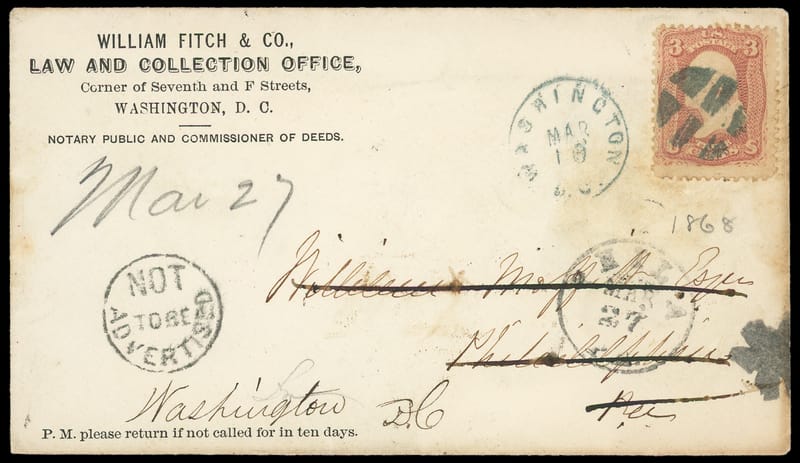 WILLIAM FITCH & CO.,
LAW AND COLLECTION OFFICE,
Corner of Seventh and F Streets,
WASHINGTON, D. C.
NOTARY PUBLIC AND COMMISSIONER OF DEEDS.
3 U.S. 3
POSTAGE
WASHINGTON
MAR
D.C.
Mar 27
1868
NOT
TO BE
ADVERTISED
William Esqr
MAR
27
Philadelphia
Washington DC
P. M. please return if not called for in ten days.